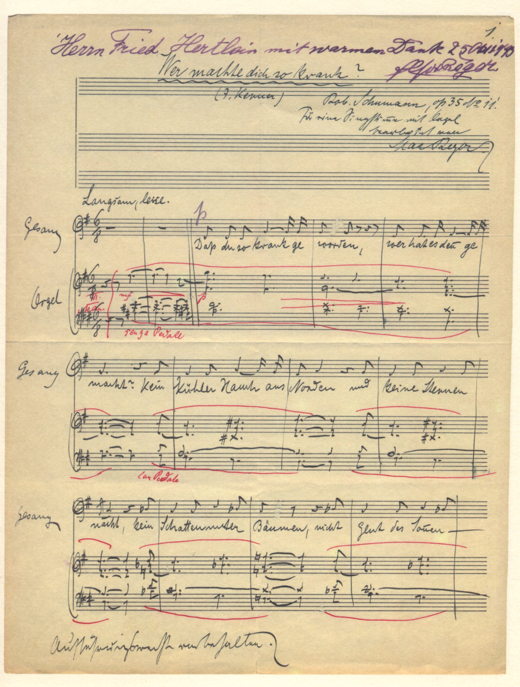 1.
Herrn Fried. Hertlein mit warmen Dank
Max Reger
Wer machte dich so krank?
(J. Kerner)
Rob. Schumann, op 35 No 11.
Für eine Singstimme mit Orgel
bearbeitet von
Max Reger
Langsam, leise.
p
Gesang
Daß du so krank geworden, wer hat es denn ge
Orgel
p
senza Pedale
Gesang
macht? Kein kühler Hauch aus Norden und keine Sternen
con Pedale
Gesang
nacht, kein Schatten unter Bäumen, nicht Glut des Sonnen
Aufführungsrecht vorbehalten.